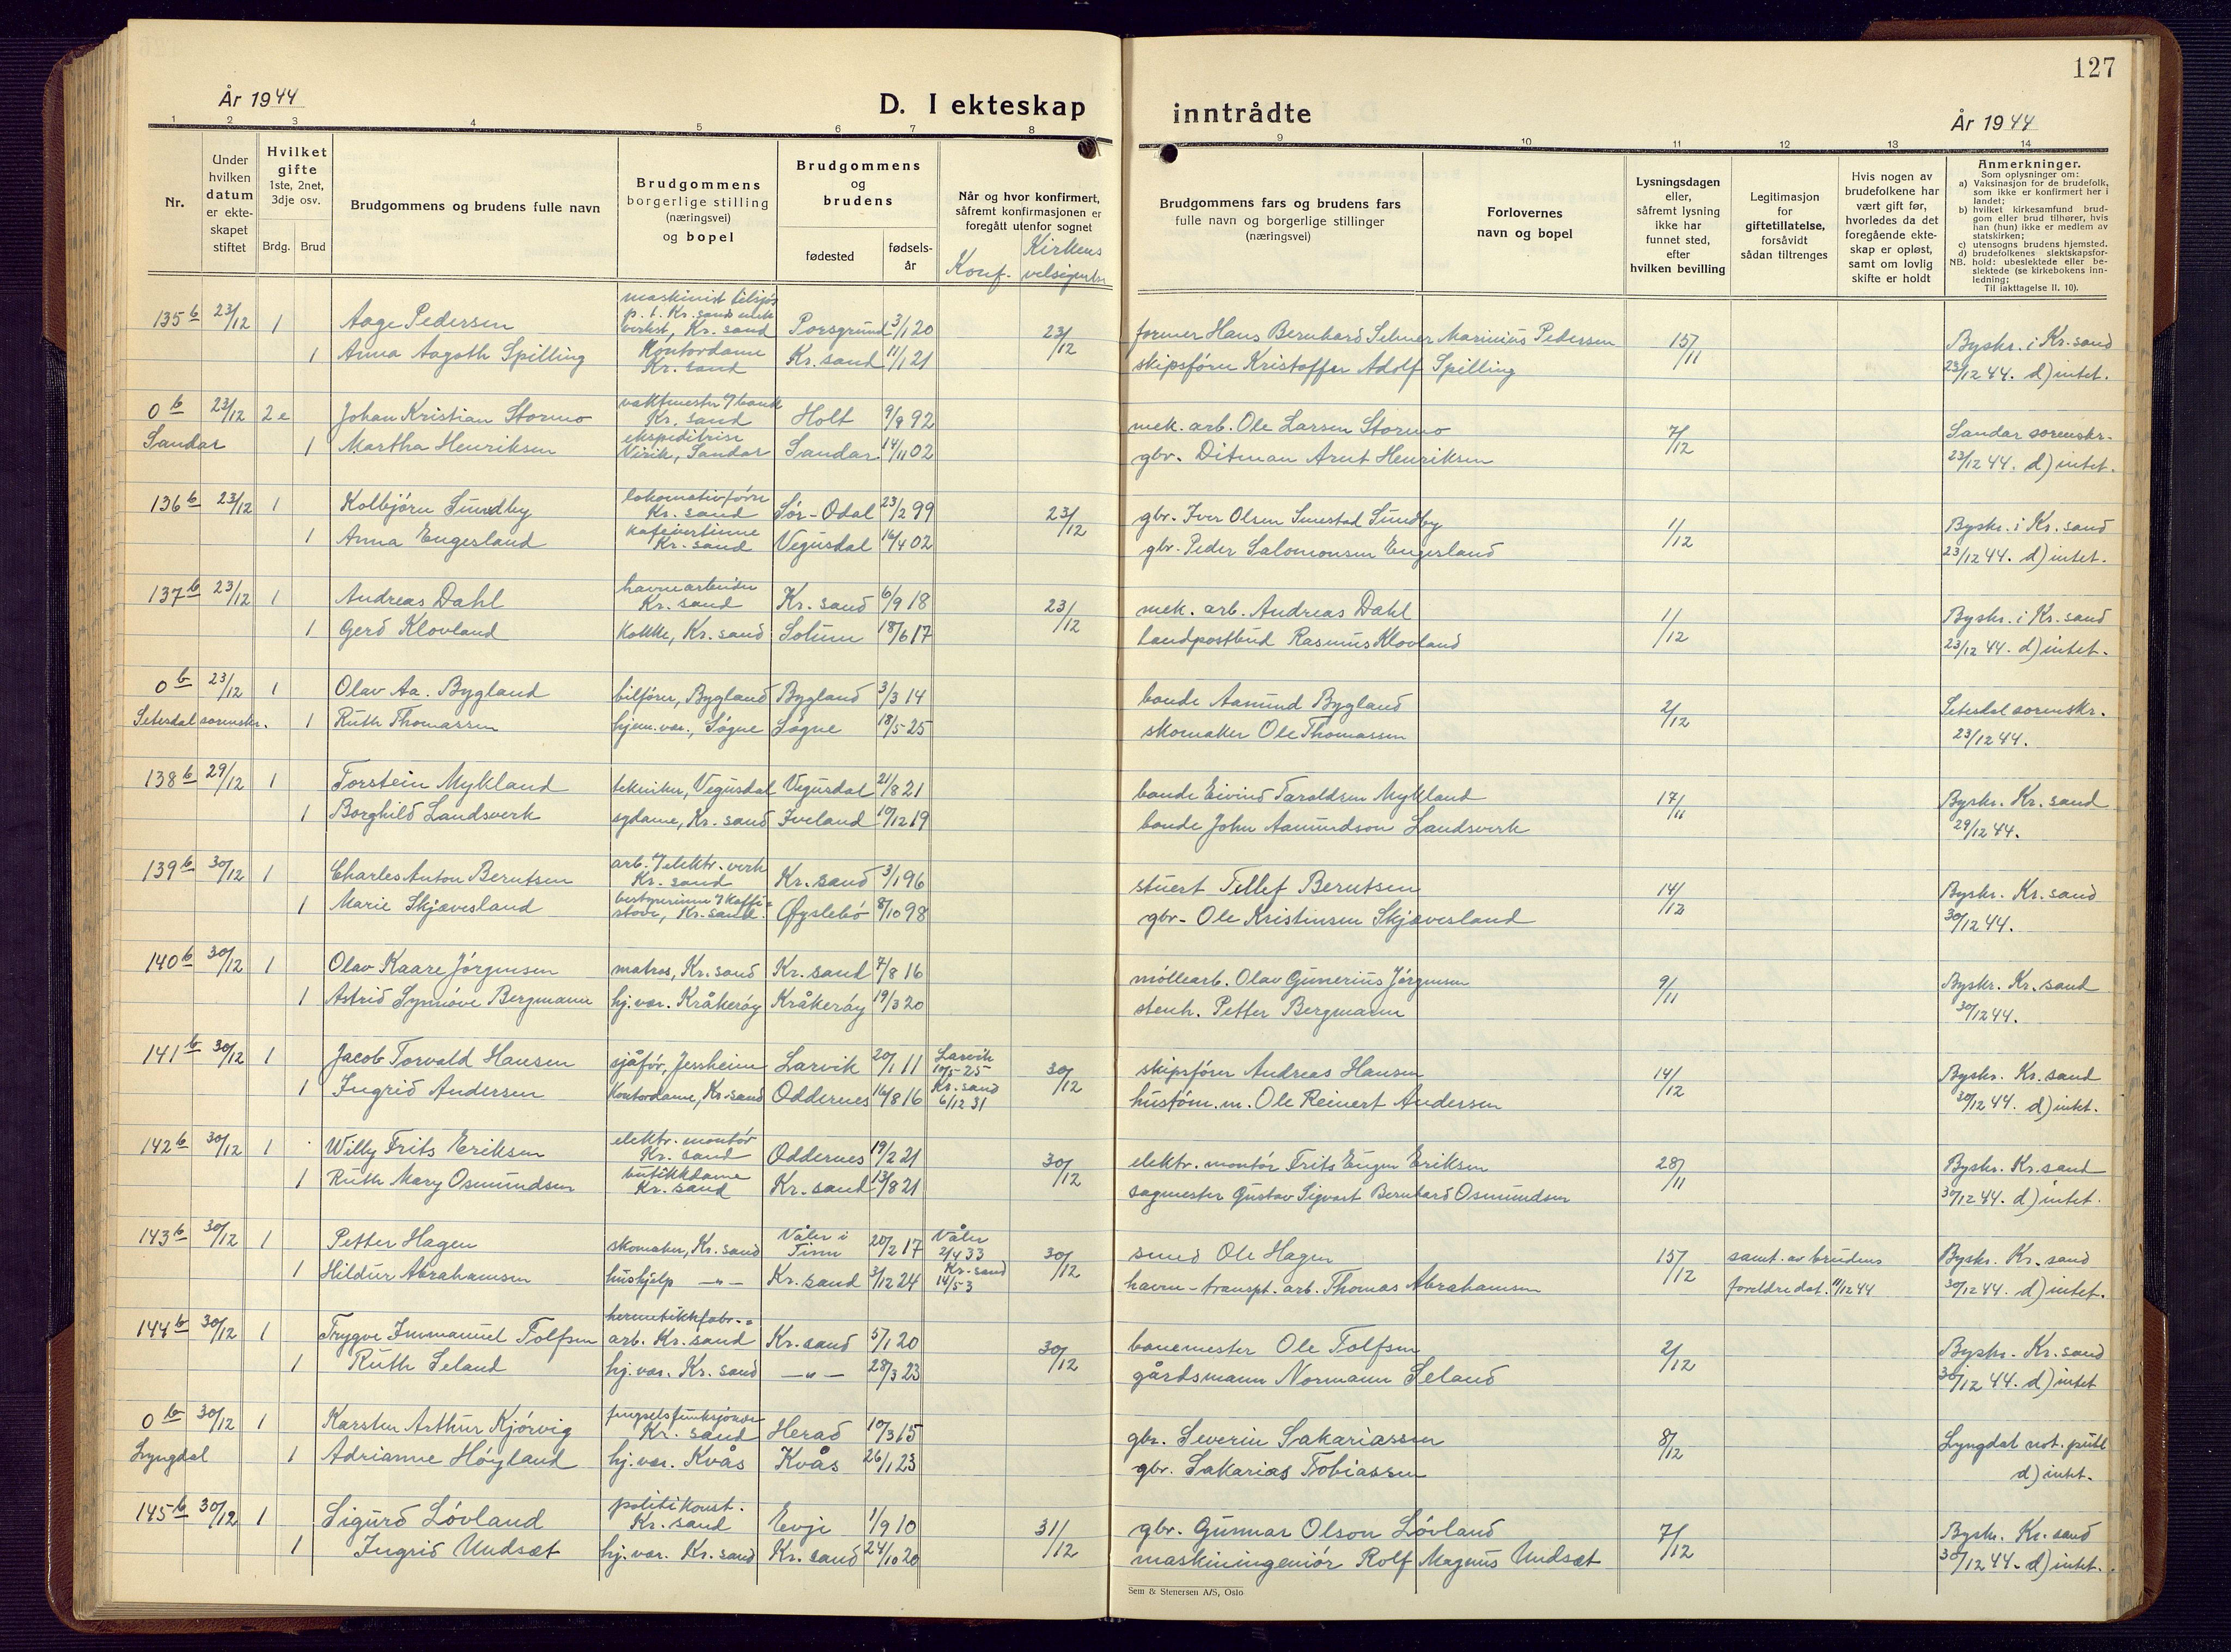 127
År 1944
D. I ekteskap
inntrådte
År 1944
1 2 3 4 5 6 7 8 9 10 11 12 13 14
Nr.
Under hvilken datum er ekte-skapet stiftet
Hvilket gifte 1ste, 2net, 3dje osv.
Brdg. Brud
Brudgommens og brudens fulle navn
Brudgommens borgerlige stilling (næringsvei) og bopel
Brudgommens og brudens
fødested
fødsels-år
Når og hvor konfirmert, såfremt konfirmasjonen er foregått utenfor sognet
Konf. Kirkens velsignelse
Brudgommens fars og brudens fars fulle navn og borgerlige stillinger (næringsvei)
Forlovernes navn og bopel
Lysningsdagen eller, såfremt lysning ikke har funnet sted, efter hvilken bevilling
Legitimasjon for giftetillatelse, forsåvidt sådan tiltrenges
Hvis nogen av brudefolkene har vært gift før, hvorledes da det foregående ekte-skap er opløst, samt om lovlig skifte er holdt
Anmerkninger.
Som oplysninger om:
a) Vaksinasjon for de brudefolk, som ikke er konfirmert her i landet;
b) hvilket kirkesamfund brud-gom eller brud tilhører, hvis han (hun) ikke er medlem av statskirken;
c) utensogns brudens hjemsted.
d) brudefolkenes slektskapsfor-hold: ubeslektede eller be-slektede (se kirkebokens inn-ledning;
NB. Til iakttagelse II. 10).
135 b 23/12 1 Aage Pedersen maskinist tilsjøs p.t. Kr.sands elek verket, Kr. sand Porsgrund 3/1 20 23/12 former Hans Bernhard Selmer Marinius Pedersen 15/11 Byskr. i Kr. sand
1 Anna Aagoth Spilling Kontordame Kr. sand Kr. sand 11/1 21 skipsfører Kristoffer Adolf Spilling 23/12 44. d) intet.
0 b 23/12 2e Johan Kristian Stormo vaktmester i/ bank Kr. sand Holt 9/8 92 mek. arb. Ole Larsen Stormo 7/12 Sandar sorenskr.
Sandar 1 Martha Henriksen ekspeditrise Virik, Sandar Sandar 14/11 02 gbr. Ditman Arnt Henriksen 23/12 44. d) intet.
136 b 23/12 1 Kolbjørn Sundby lokomotivfører Kr. sand Sør-Odal 23/2 99 23/12 gbr. Iver Olsen Smestad Sundby 1/12 Byskr. i Kr. sand
1 Anna Engesland kafevertinne Kr. sand Vegusdal 16/4 02 gbr. Peder Salomonsen Engesland 23/12 44. d) intet.
137 b 23/12 1 Andreas Dahl havnearbeider Kr. sand Kr. sand 6/9 18 23/12 mek. arb. Andreas Dahl 1/12 Byskr. i Kr. sand
1 Gerd Klovland kokke, Kr. sand Solum 18/6 17 landpostbud Rasmus Klovland 23/12 44. d) intet.
0 b 23/12 1 Olav Aa. Bygland bilfører, Bygland Bygland 3/3 14 bonde Aamund Bygland 2/12 Setesdal sorenskr.
Setesdal sorenskr. 1 Ruth Thomassen hjem.vær., Søgne Søgne 18/5 25 skomaker Ole Thomassen 23/12 44.
138 b 29/12 1 Torstein Mykland tekniker, Vegusdal Vegusdal 21/8 21 bonde Eivind Taraldsen Mykland 17/11 Byskr. Kr. sand
1 Borghild Landsverk sydame, Kr. sand Iveland 10/12 19 bonde John Aamundson Landsverk 29/12 44.
139 b 30/12 1 Charles Anton Berntsen arb. i/ elektr. verk Kr. sand Kr. sand 3/1 96 stuert Tellef Berntsen 14/12 Byskr. Kr. sand
1 Marie Skjævesland bestyrerinne i/ kaffi-stove, Kr. sand. Øyslebø 8/10 98 gbr. Ole Kristensen Skjævesland 30/12 44.
140 b 30/12 1 Olav Kaare Jørgensen matros, Kr. sand Kr. sand 7/8 16 møllearb. Olav Gunerius Jørgensen 9/11 Byskr. Kr. sand
1 Astrid Synnøve Bergmann hj.vær. Kråkerøy Kråkerøy 19/3 20 stenh. Petter Bergmann 30/12 44.
141 b 30/12 1 Jacob Torvald Hansen sjåfør, Jessheim Larvik 20/1 11 Larvik 10/5-25 30/12 skipsfører Andreas Hansen 14/12 Byskr. Kr. sand
1 Ingrid Andersen Kontordame, Kr. sand Oddernes 16/8 16 Kr. sand 6/12 31 hustøm.m. Ole Reinert Andersen 30/12 44. d) intet.
142 b 30/12 1 Willy Frits Eriksen elektr. montør Kr. sand Oddernes 19/2 21 30/12 elektr. montør Frits Eugen Eriksen 28/11 Byskr. Kr. sand
1 Ruth Mary Osmundsen butikkdame Kr. sand Kr. sand 13/8 21 sagmester Gustav Sigvart Bernhard Osmundsen 30/12 44. d) intet.
143 b 30/12 1 Petter Hagen skomaker, Kr. sand Våler i 20/2 17 Våler 2/4 33 30/12 smed Ole Hagen 15/12 samt. av brudens Byskr. Kr. sand
1 Hildur Abrahamsen hushjelp —"— Kr. sand 3/12 24 Kr. sand 14/5-3 havn-transpt. arb. Thomas Abrahamsen foreldre dat. 11/12 44 30/12 44. d) intet.
144 b 30/12 1 Trygve Immanuel Tolfsen hermetikkfabr.-arb. Kr. sand Kr. sand 5/1 20 30/12 banemester Ole Tolfsen 2/12 Byskr. Kr. sand
1 Ruth Seland hj.vær. Kr. sand —"— 28/3 23 gårdsmann Normann Seland 30/12 44. d) intet
0 b 30/12 1 Karsten Arthur Kjørvig fengselsfunksjonær Kr. sand Herad 10/3 15 gbr. Severin Sakariassen 8/12 Lyngdal not. publ
Lyngdal 1 Adrianne Høyland hj.vær. Kvås Kvås 26/1 23 gbr. Sakarias Tobiassen d) intet.
145 b 30/12 1 Sigurd Løvland politikonst. Kr. sand Evje 1/9 10 31/12 gbr. Gunnar Olson Løvland 7/12 Byskr. Kr. sand
1 Ingrid Undsæt hj.vær. Kr. sand Kr. sand 24/10 20 maskiningeniør Rolf Magnus Undsæt 30/12 44. d) intet.
Sem & Stenersen A/S, Oslo